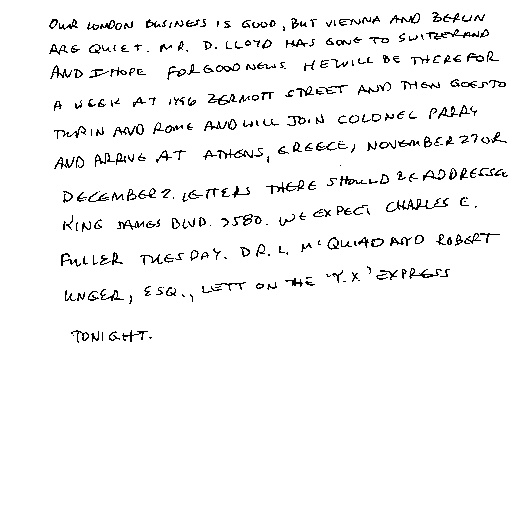 OUR LONDON BUSINESS IS GOOD, BUT VIENNA AND BERLIN
ARE QUIET. MR. D. LLOYD HAS GONE TO SWITZERLAND
AND I HOPE FOR GOOD NEWS. HE WILL BE THERE FOR
A WEEK AT 1496 ZERMOTT STREET AND THEN GOES TO
TURIN AND ROME AND WILL JOIN COLONEL PARRY
AND ARRIVE AT ATHENS, GREECE, NOVEMBER 27 OR
DECEMBER 2. LETTERS THERE SHOULD BE ADDRESSED
KING JAMES BLVD. 3580. WE EXPECT CHARLES E.
FULLER TUESDAY. DR. L. MCQUAID AND ROBERT
UNGER, ESQ., LEFT ON THE 'Y.X' EXPRESS
TONIGHT.